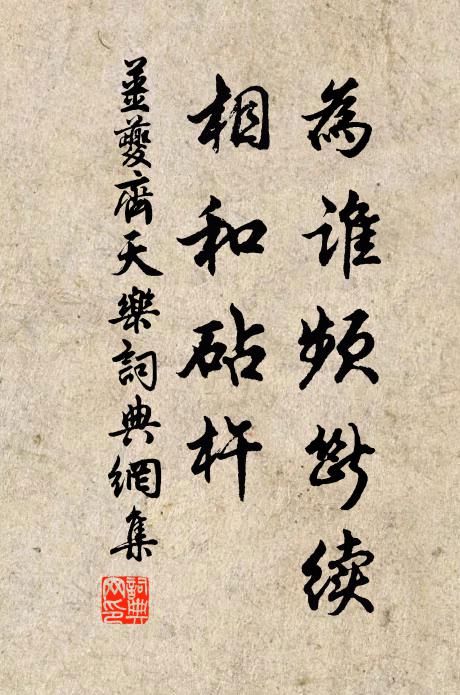 為誰頻斷續
相和砧杵
姜夔齊天樂詞典網集
詞典网印